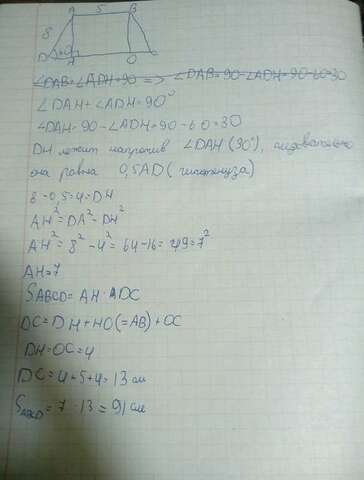 A 5 B
8
D 60 H O C
∠DAB=∠ADH=90 => ∠DAB=90-∠ADH=90-60=30
∠DAH+∠ADH=90°
∠DAH=90-∠ADH=90-60=30
DH лежит напротив ∠DAH (90°), следовательно
она равна 0,5AD (гипотенуза)
8-0,5=4=DH
AH²=DA²-DH²
AH²=8²-4²=64-16=49=7²
AH=7
SABCD=AH·DC
DC=DH+HO(=AB)+OC
DH=OC=4
DC=4+5+4=13 см
SABCD=7·13=91 см